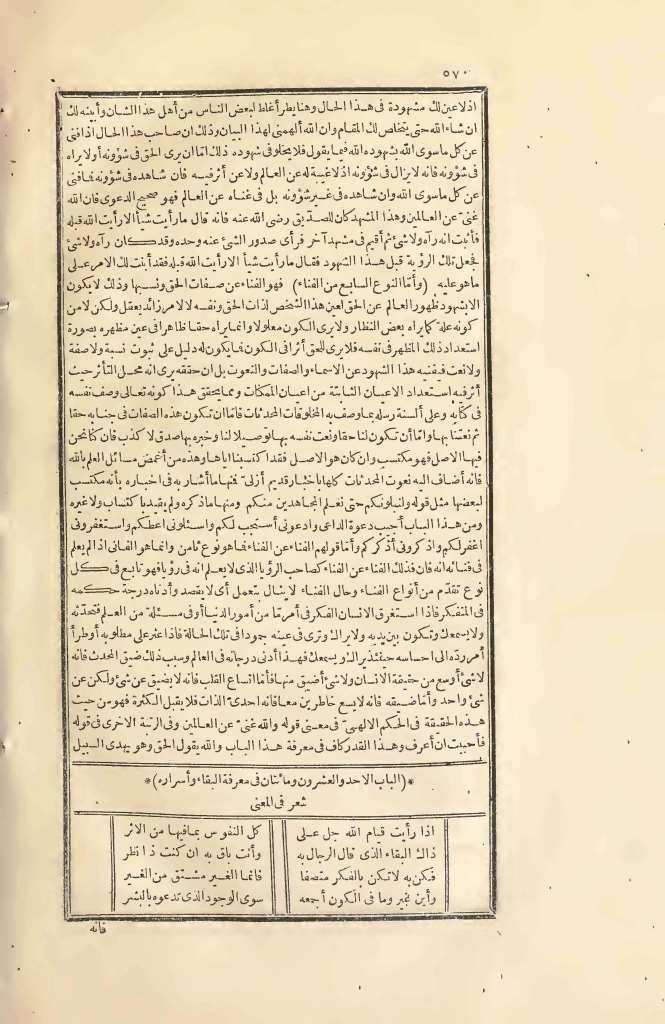 ٥٧٠
اذ لاعين لك مشهودة فى هذا الحال وهنا يطرأ غلط لبعض الناس من أهل هذا الشان وأبينه لك
ان شاء الله حتى يتخلص لك المقام وان الله ألهمنى لهذا البيان وذلك ان صاحب هذا الحال اذا فنى
عن كل ما سوى الله بشهوده الله فيما يقول فلا يخلو فى شهوده ذلك امّا ان يرى الحق فى شؤونه أولا يراه
فى شؤونه فانه لا يزال فى شؤونه اذ لا غيبة له عن العالم ولا عن أثر فيه فان شاهده فى شؤونه فما فنى
عن كل ما سوى الله وان شاهده فى غير شؤونه بل فى غناه عن العالم فهو صحيح الدعوى فان الله
غنىّ عن العالمين وهذا المشهد كان للصدّيق رضى الله عنه فانه قال ما رأيت شيأ الا رأيت الله قبله
فأثبت انه رآه ولا شئ ثم أقيم فى مشهد آخر فرأى صدور الشئ عنه وحده وقد كان رآه ولا شئ
فجعل تلك الرؤية قبل هذا الشهود فقال ما رأيت شيأ الا رأيت الله قبله فقد أبنت لك الامر على
ماهو عليه (وأمّا النوع السابع من الفناء) فهو الفناء عن صفات الحق ونسبها وذلك لا يكون
الا بشهود ظهور العالم عن الحق لعين هذا الشخص لذات الحق ونفسه لا لامر زائد يعقل ولكن لا من
كونه علة كما يراه بعض النظار ولا يرى الكون معلولا وانما يراه حقا ظاهرا فى عين مظهره بصورة
استعداد ذلك المظهر فى نفسه فلا يرى للحق أثرا فى الكون فما يكون له دليل على ثبوت نسبة ولا صفة
ولا نعت فيفنيه هذا الشهود عن الاسماء والصفات والنعوت بل ان حققه يرى انه محل التأثر حيث
أثر فيه استعداد الاعيان الثابتة من اعيان الممكنات ومما يحقق هذا كونه تعالى وصف نفسه
فى كتابه وعلى ألسنة رسله بما وصف به المخلوقات المحدثات فامّا ان تكون هذه الصفات فى جنابه حقا
ثم نعتنا بها وامّا أن تكون لنا حقا ونعت نفسه بها توصيلا لنا وخبره بها صدق لا كذب فان كنا نحن
فيها الاصل فهو مكتسب وان كان هو الاصل فقد اكتسبنا اياها وهذه من أغمض مسائل العلم بالله
فانه أضاف اليه نعوت المحدثات كلها باخبار قديم أزلىّ فمنها ما أشار به فى اخباره بأنه مكتسب
لبعضها مثل قوله ولنبلونكم حتى نعلم المجاهدين منكم ومنها ما ذكره ولم يقيد باكتساب ولا غيره
ومن هذا الباب أجيب دعوة الداعى وادعونى أستجب لكم واسئلونى أعطكم واستغفرونى
اغفر لكم واذكرونى أذكركم وأمّا قولهم الفناء عن الفناء فما هو نوع ثامن وانما هو الفانى اذا لم يعلم
فى فنائه انه فان فذلك الفناء عن الفناء كصاحب الرؤيا الذى لا يعلم انه فى رؤيا فهو تابع فى كل
نوع تقدّم من أنواع الفناء وحال الفناء لا ينال بتعمل أى لا يقصد وأدناه درجة حكمه
فى المتفكر فاذا استغرق الانسان الفكر فى أمر مّا من أمور الدنيا أو فى مسئلة من العلم فتحدّثه
ولا يسمعك وتكون بين يديه ولا يراك وترى فى عينه جمودا فى تلك الحالة فاذا عثر على مطلوبه أو طرأ
أمر ردّه الى احساسه حينئذ يراك ويسمعك فهذا أدنى درجاته فى العالم وسبب ذلك ضيق المحدث فانه
لا شئ أوسع من حقيقة الانسان ولا شئ أضيق منها فأمّا اتساع القلب فانه لا يضيق عن شئ ولكن عن
شئ واحد وأمّا ضيقه فانه لا يسع خاطرين معا فانه احدىّ الذات فلا يقبل الكثرة فهو من حيث
هذه الحقيقة فى الحكم الالهىّ فى معنى قوله والله غنىّ عن العالمين وفى الرتبة الاخرى فى قوله
فأحببت ان أعرف وهذا القدر كاف فى معرفة هذا الباب والله يقول الحق وهو يهدى السبيل
*(الباب الاحد والعشرون ومائتان فى معرفة البقاء وأسراره)*
شعر فى المعنى
اذا رأيت قيام الله جل على كل النفوس بما فيها من الاثر
ذاك البقاء الذى قال الرجال به وأنت باق به ان كنت ذا نظر
فكن به لا تكن بالفكر متصفا فانما الغير مشتق من الغير
وأين غير وما فى الكون أجمعه سوى الوجود الذى تدعوه بالبشر
فانه